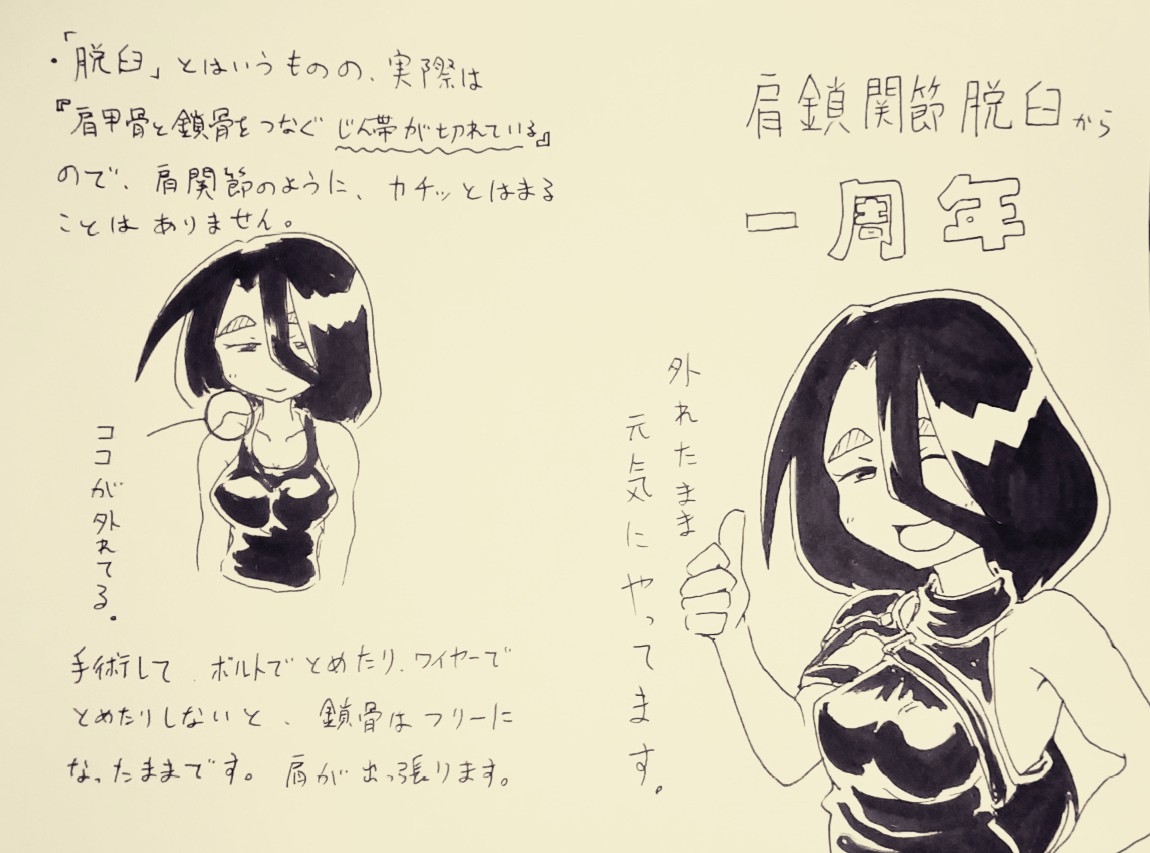 肩鎖関節脱臼から
一周年
外れたまま
元気にやってます。
・「脱臼」とはいうものの、実際は
『肩甲骨と鎖骨をつなぐじん帯が切れている』
ので、肩関節のように、カチッとはまる
ことはありません。
ココが外れてる。
手術して、ボルトでとめたり、ワイヤーで
とめたりしないと、鎖骨はフリーに
なったままです。肩が出っ張ります。